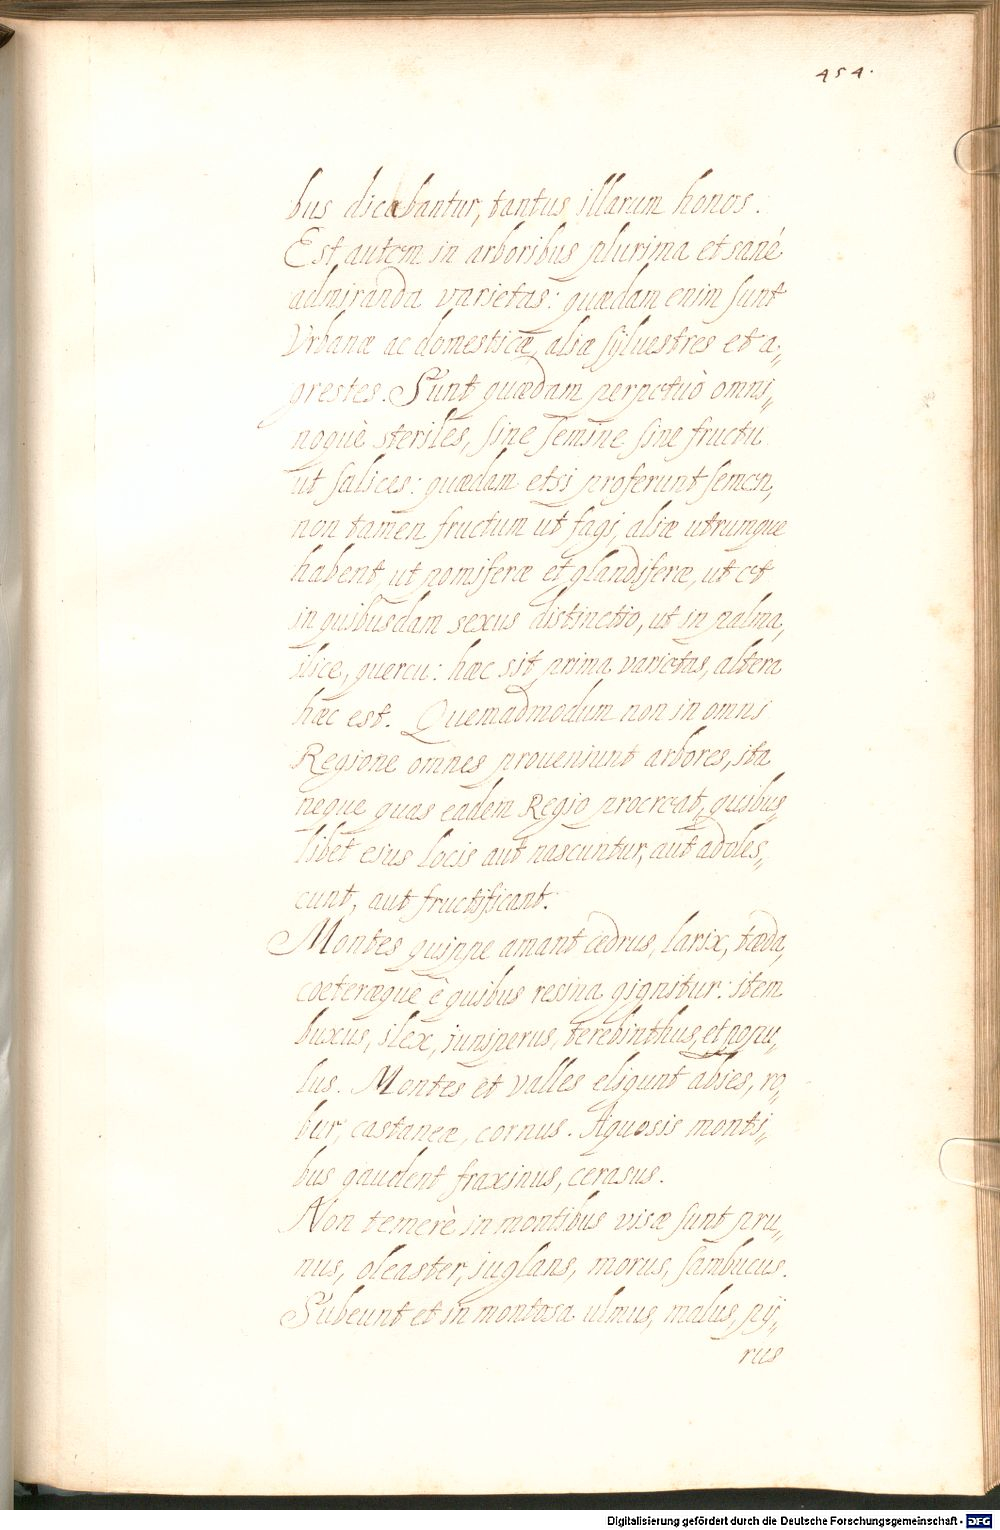 454.
bus dicabantur, tantus illarum honos.
Est autem in arboribus plurima et sanè
admiranda varietas: quædam enim sunt
Vrbanæ ac domesticæ, aliæ sylvestres et a„
grestes. Sunt quædam perpetuò omni„
noquè steriles, sine semine sine fructu
ut salices: quædam etsi proferunt semen,
non tamen fructum ut fagi, aliæ utrumque
habent, ut pomiferæ et glandiferæ, ut et
in quibusdam sexus distinctio, ut in palma,
ilice, quercu: hæc sit prima varietas, altera
hæc est. Quemadmodum non in omni
Regione omnes proueniunt arbores, ita
neque quas eadem Regio procreat, quibus„
libet ejus locis aut nascuntur, aut adoles„
cunt, aut fructificant.
Montes quippe amant cedrus, larix, tæda,
coeteræque è quibus resina gignitur: item
buxus, ilex, juniperus, terebinthus, et popu„
lus. Montes et valles eligunt abies, ro„
bur, castaneæ, cornus. Aquosis monti„
bus gaudent fraxinus, cerasus.
Non temerè in montibus visæ sunt pru„
nus, oleaster, juglans, morus, sambucus.
Subeunt et in montosa ulmus, malus, pÿ„
rus
Digitalisierung gefördert durch die Deutsche Forschungsgemeinschaft - DFG